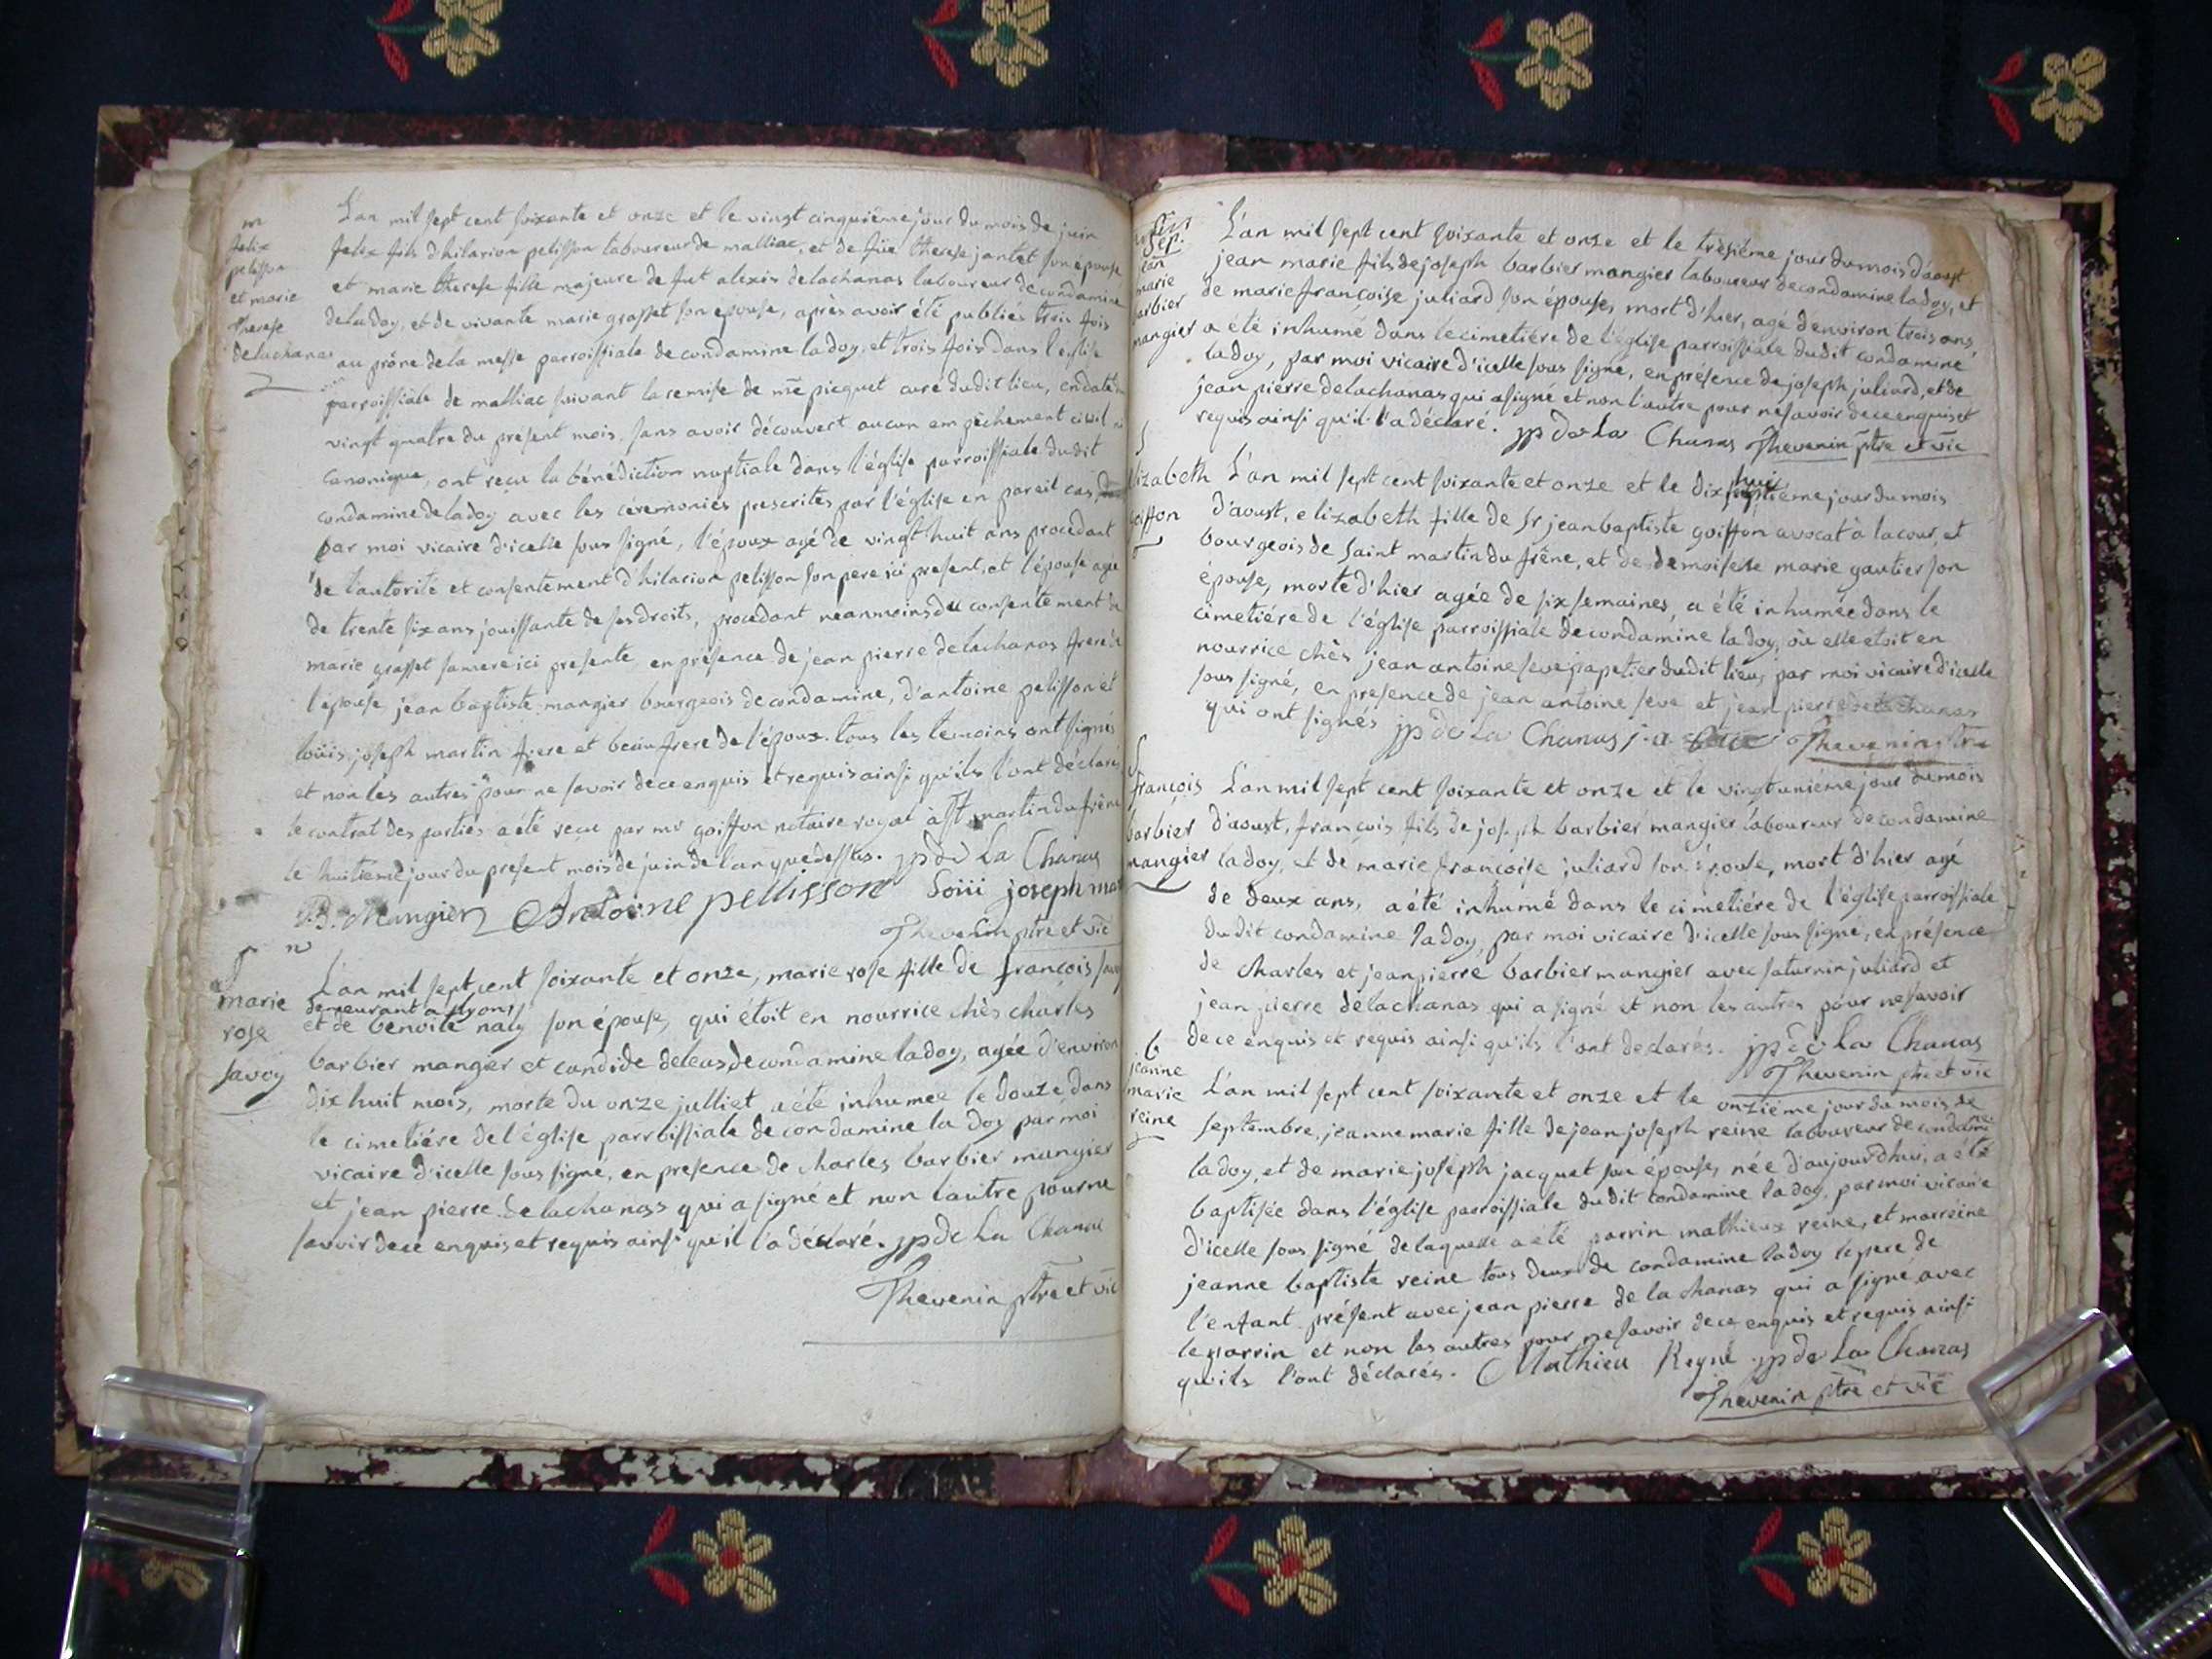 m
felix
pelisson
et marie
therese
delachanas
L'an mil sept cent soixante et onze et le vingt cinquième jour du mois de juin
felix fils d'hilarion pelisson laboureur de malliac, et de füe therese jantet son epouse
et marie therese fille majeure de fut alexis delachanas laboureur de condamine
deladoy, et de vivante marie grasset son epouse, après avoir été publiés trois fois
au prône de la messe parroissiale de condamine ladoy, et trois fois dans l'eglise
parroissiale de malliac suivant la remise de mre picquet curé dudit lieu, en date
vingt quatre du present mois, sans avoir découvert aucun empêchement civil ni
canonique, ont reçu la bénédiction nuptiale dans l'église parroissiale dudit
condamine deladoy avec les cérémonies prescrites par l'église en pareil cas,
par moi vicaire d'icelle sous signé, l'époux agé de vingt huit ans procedant
de l'autorité et consentement d'hilarion pelisson son pere ici present, et l'épouse agée
de trente six ans jouissante de ses droits, procedant neanmoins du consentement de
marie grasset sa mere ici presente, en présence de jean pierre delachanas frere de
l'épouse jean baptiste mangier bourgeois de condamine, d'antoine pelisson et
loüis joseph martin frere et beaufrere de l'époux. tous les temoins ont signés
et non les autres pour ne savoir de ce enquis et requis ainsi qu'ils l'ont déclaré
le contrat des parties a été reçu par mr goiffon notaire royal à st martin du frêne
le huitieme jour du present mois de juin de l'an que dessus. jp de La Chanas
B. Mangier Antoine pellisson Loiii joseph mar
Thevenin ptre et vic
marie
rose
savoy
L'an mil sept cent soixante et onze, marie rose fille de françois savoy
demeurant a lyons
et de benoite naly son épouse, qui étoit en nourrice chès charles
barbier mangier et candide deleas de condamine ladoy, agée d'environ
dix huit mois, morte du onze julliet a été inhumee le douze dans
le cimetiére de l'église parroissiale de condamine la doy par moi
vicaire d'icelle sous signé, en presence de charles barbier mangier
et jean pierre delachanas qui a signé et non l'autre pour ne
savoir de ce enquis et requis ainsi qu'il l'a déclaré. jp de La Chanas
Thevenin ptre et vic
jean
marie
barbier
mangier
L'an mil sept cent soixante et onze et le trèsiéme jour du mois d'aoust
jean marie fils de joseph barbier mangier laboureur de condamine ladoy, et
de marie françoise juliard son épouse, mort d'hier, agé d'environ trois ans
a été inhumé dans le cimetiére de l'église parroissiale dudit condamine
ladoy, par moi vicaire d'icelle sous signé, en présence de joseph juliard, et de
jean pierre delachanas qui a signé et non l'autre pour ne savoir de ce enquis et
requis ainsi qu'il l'a déclaré. jp de La Chanas Thevenin ptre et vic
S
lizabeth
goiffon
L'an mil sept cent soixante et onze et le dix huitiéme jour du mois
d'aoust, elizabeth fille de sr jean baptiste goiffon avocat à la cour, et
bourgeois de saint martin du frêne, et de demoiselle marie gautier son
épouse, morte d'hier agée de six semaines, a été inhumée dans le
cimetiére de l'église parroissiale de condamine ladoy, où elle étoit en
nourrice chès jean antoine seve papetier dudit lieu, par moi vicaire d'icelle
sous signé, en presence de jean antoine seve et jean pierre delachanas
qui ont signés jp de La Chanas j. a. Thevenin ptre
S
françois
barbier
mangier
L'an mil sept cent soixante et onze et le vingt uniéme jour du mois
d'aoust, françois fils de joseph barbier mangier laboureur de condamine
ladoy, et de marie françoise juliard son épouse, mort d'hier agé
de deux ans, a été inhumé dans le cimetiére de l'église parroissiale
dudit condamine ladoy, par moi vicaire d'icelle sous signé, en présence
de charles et jean pierre barbier mangier avec saturnin juliard et
jean pierre delachanas qui a signé et non les autres pour ne savoir
de ce enquis et requis ainsi qu'ils l'ont declarés. jp de La Chanas
Thevenin ptre et vic
b
jeanne
marie
reine
L'an mil sept cent soixante et onze et le onziéme jour du mois de
septembre, jeanne marie fille de jean joseph reine laboureur de condamine
ladoy, et de marie joseph jacquet son épouse, née d'aujourdhui, a été
baptisée dans l'église parroissiale dudit condamine ladoy, par moi vicaire
d'icelle sous signé de laquelle a été parrin mathieux reine, et marreine
jeanne baptiste reine tous deux de condamine ladoy le pere de
l'enfant présent avec jean pierre de la chanas qui a signé avec
le parrin et non les autres pour ne savoir de ce enquis et requis ainsi
qu'ils l'ont déclarés. Mathieu Reyne jp de La Chanas
Thevenin ptre et vic